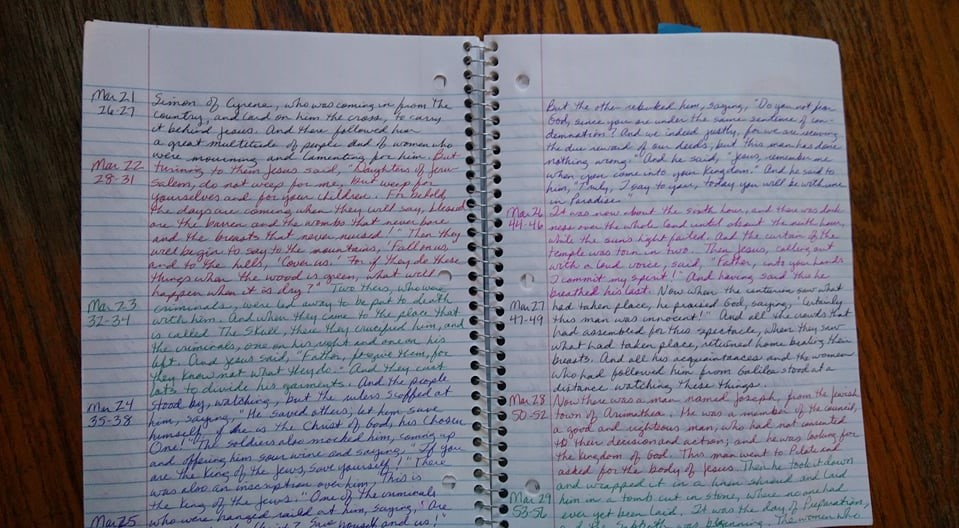 Mar 21 Simon of Cyrene, who was coming in from the
26-27 country, and laid on him the cross, to carry
it behind Jesus. And there followed him
a great multitude of people and of women who
were mourning and lamenting for him. But
Mar 22 turning to them Jesus said, "Daughters of Jeru-
28-31 salem, do not weep for me, but weep for
yourselves and for your children. For behold,
the days are coming when they will say, 'Blessed
are the barren and the wombs that never bore
and the breasts that never nursed!' Then they
will begin to say to the mountains, 'Fall on us,'
and to the hills, 'Cover us.' For if they do these
things when the wood is green, what will
happen when it is dry?" Two others, who were
Mar 23 criminals, were led away to be put to death
32-34 with him. And when they came to the place that
is called The Skull, there they crucified him, and
the criminals, one on his right and one on his
left. And Jesus said, "Father, forgive them, for
they know not what they do." And they cast
lots to divide his garments. And the people
Mar 24 stood by, watching, but the rulers scoffed at
35-38 him, saying, "He saved others, let him save
himself, if he is the Christ of God, his Chosen
One!" The soldiers also mocked him, coming up
and offering him sour wine and saying, "If you
are the King of the Jews, save yourself!" There
was also an inscription over him, "This is
the King of the Jews." One of the criminals
Mar 25 who were hanged railed at him, saying, "Are
Save yourself and us,"
But the other rebuked him, saying, "Do you not fear
God, since you are under the same sentence of con-
demnation? And we indeed justly, for we are receiving
the due reward of our deeds, but this man has done
nothing wrong." And he said, "Jesus, remember me
when you come into your kingdom." And he said to
him, "Truly, I say to you, today you will be with me
in Paradise."
Mar 26 It was now about the sixth hour, and there was dark-
44-46 ness over the whole land until about the ninth hour,
while the sun's light failed. And the curtain of the
temple was torn in two. Then Jesus, calling out
with a loud voice, said, "Father, into your hands
I commit my spirit!" And having said this he
breathed his last. Now when the centurion saw what
Mar 27 had taken place, he praised God, saying, "Certainly
47-49 this man was innocent!" And all the crowds that
had assembled for this spectacle, when they saw
what had taken place, returned home beating their
breasts. And all his acquaintances and the women
who had followed him from Galilee stood at a
distance watching these things.
Mar 28 Now there was a man named Joseph, from the Jewish
50-52 town of Arimathea. He was a member of the council,
a good and righteous man, who had not consented
to their decision and action; and he was looking for
the kingdom of God. This man went to Pilate and
asked for the body of Jesus. Then he took it down
and wrapped it in a linen shroud and laid
Mar 29 him in a tomb cut in stone, where no one had
53-56 ever yet been laid. It was the day of Preparation,
and the Sabbath was beginning. The women who